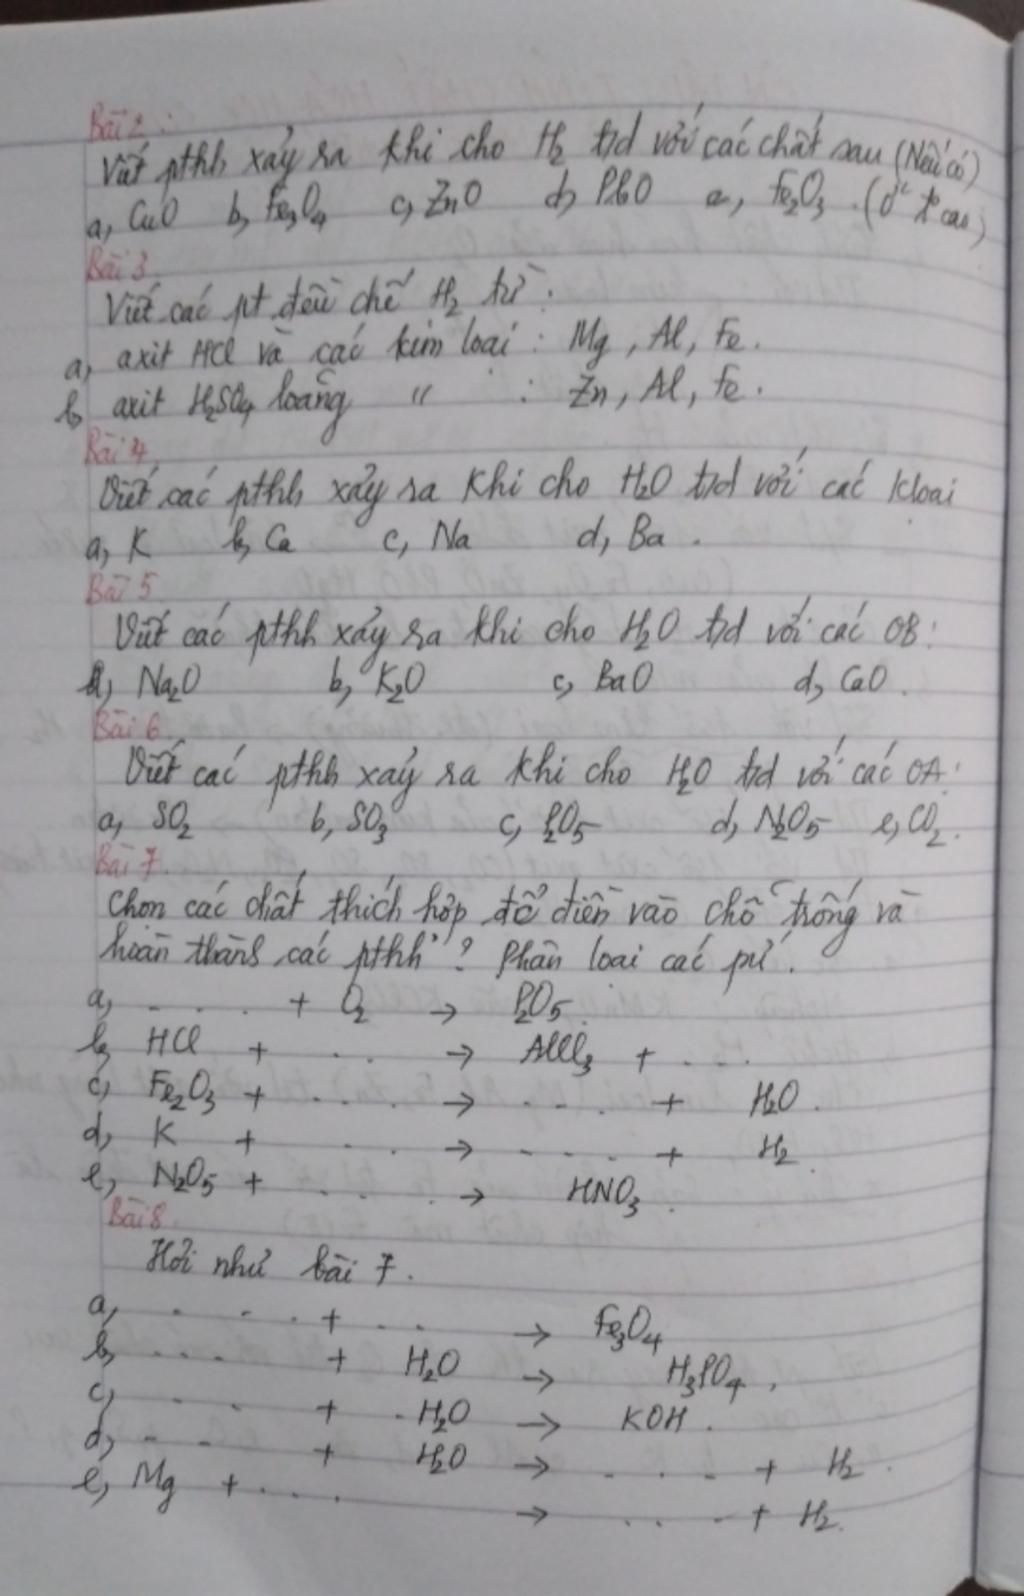 Bài 2:
Viết pthh xảy ra khi cho H₂ t/d với các chất sau (Nếu có)
a, CuO b, Fe₃O₄ c, ZnO d, PbO e, Fe₂O₃. (ở t° cao)
Bài 3
Viết các pt điều chế H₂ từ:
a, axit HCl và các kim loại: Mg, Al, Fe.
b, axit H₂SO₄ loãng " : Zn, Al, Fe.
Bài 4
Viết các pthh xảy ra khi cho H₂O t/d với các kloại
a, K b, Ca c, Na d, Ba.
Bài 5
Viết các pthh xảy ra khi cho H₂O t/d với các OB:
a, Na₂O b, K₂O c, BaO d, CaO.
Bài 6
Viết các pthh xảy ra khi cho H₂O t/d với các OA:
a, SO₂ b, SO₃ c, P₂O₅ d, N₂O₅ e, CO₂.
Bài 7
Chọn các chất thích hợp để điền vào chỗ trống và
hoàn thành các pthh? Phân loại các pứ.
a, .... + O₂ → P₂O₅.
b, HCl + .... → AlCl₃ + ....
c, Fe₂O₃ + .... → .... + H₂O.
d, K + .... → .... + H₂.
e, N₂O₅ + .... → HNO₃.
Bài 8
Hỏi như bài 7.
a, .... + .... → Fe₃O₄
b, .... + H₂O → H₃PO₄,
c, .... + H₂O → KOH.
d, .... + H₂O → .... + H₂.
e, Mg + .... → .... + H₂.